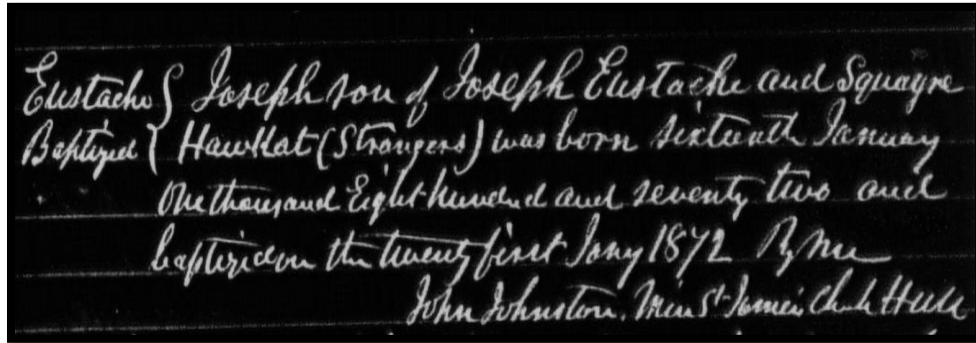 Eustache { Joseph son of Joseph Eustache and Squayre
Baptized { Hawkat (Strangers) was born sixteenth January
One thousand Eight hundred and seventy two and
baptized on the twenty first Jany 1872 By me
John Johnston. Min St James Chch Hull